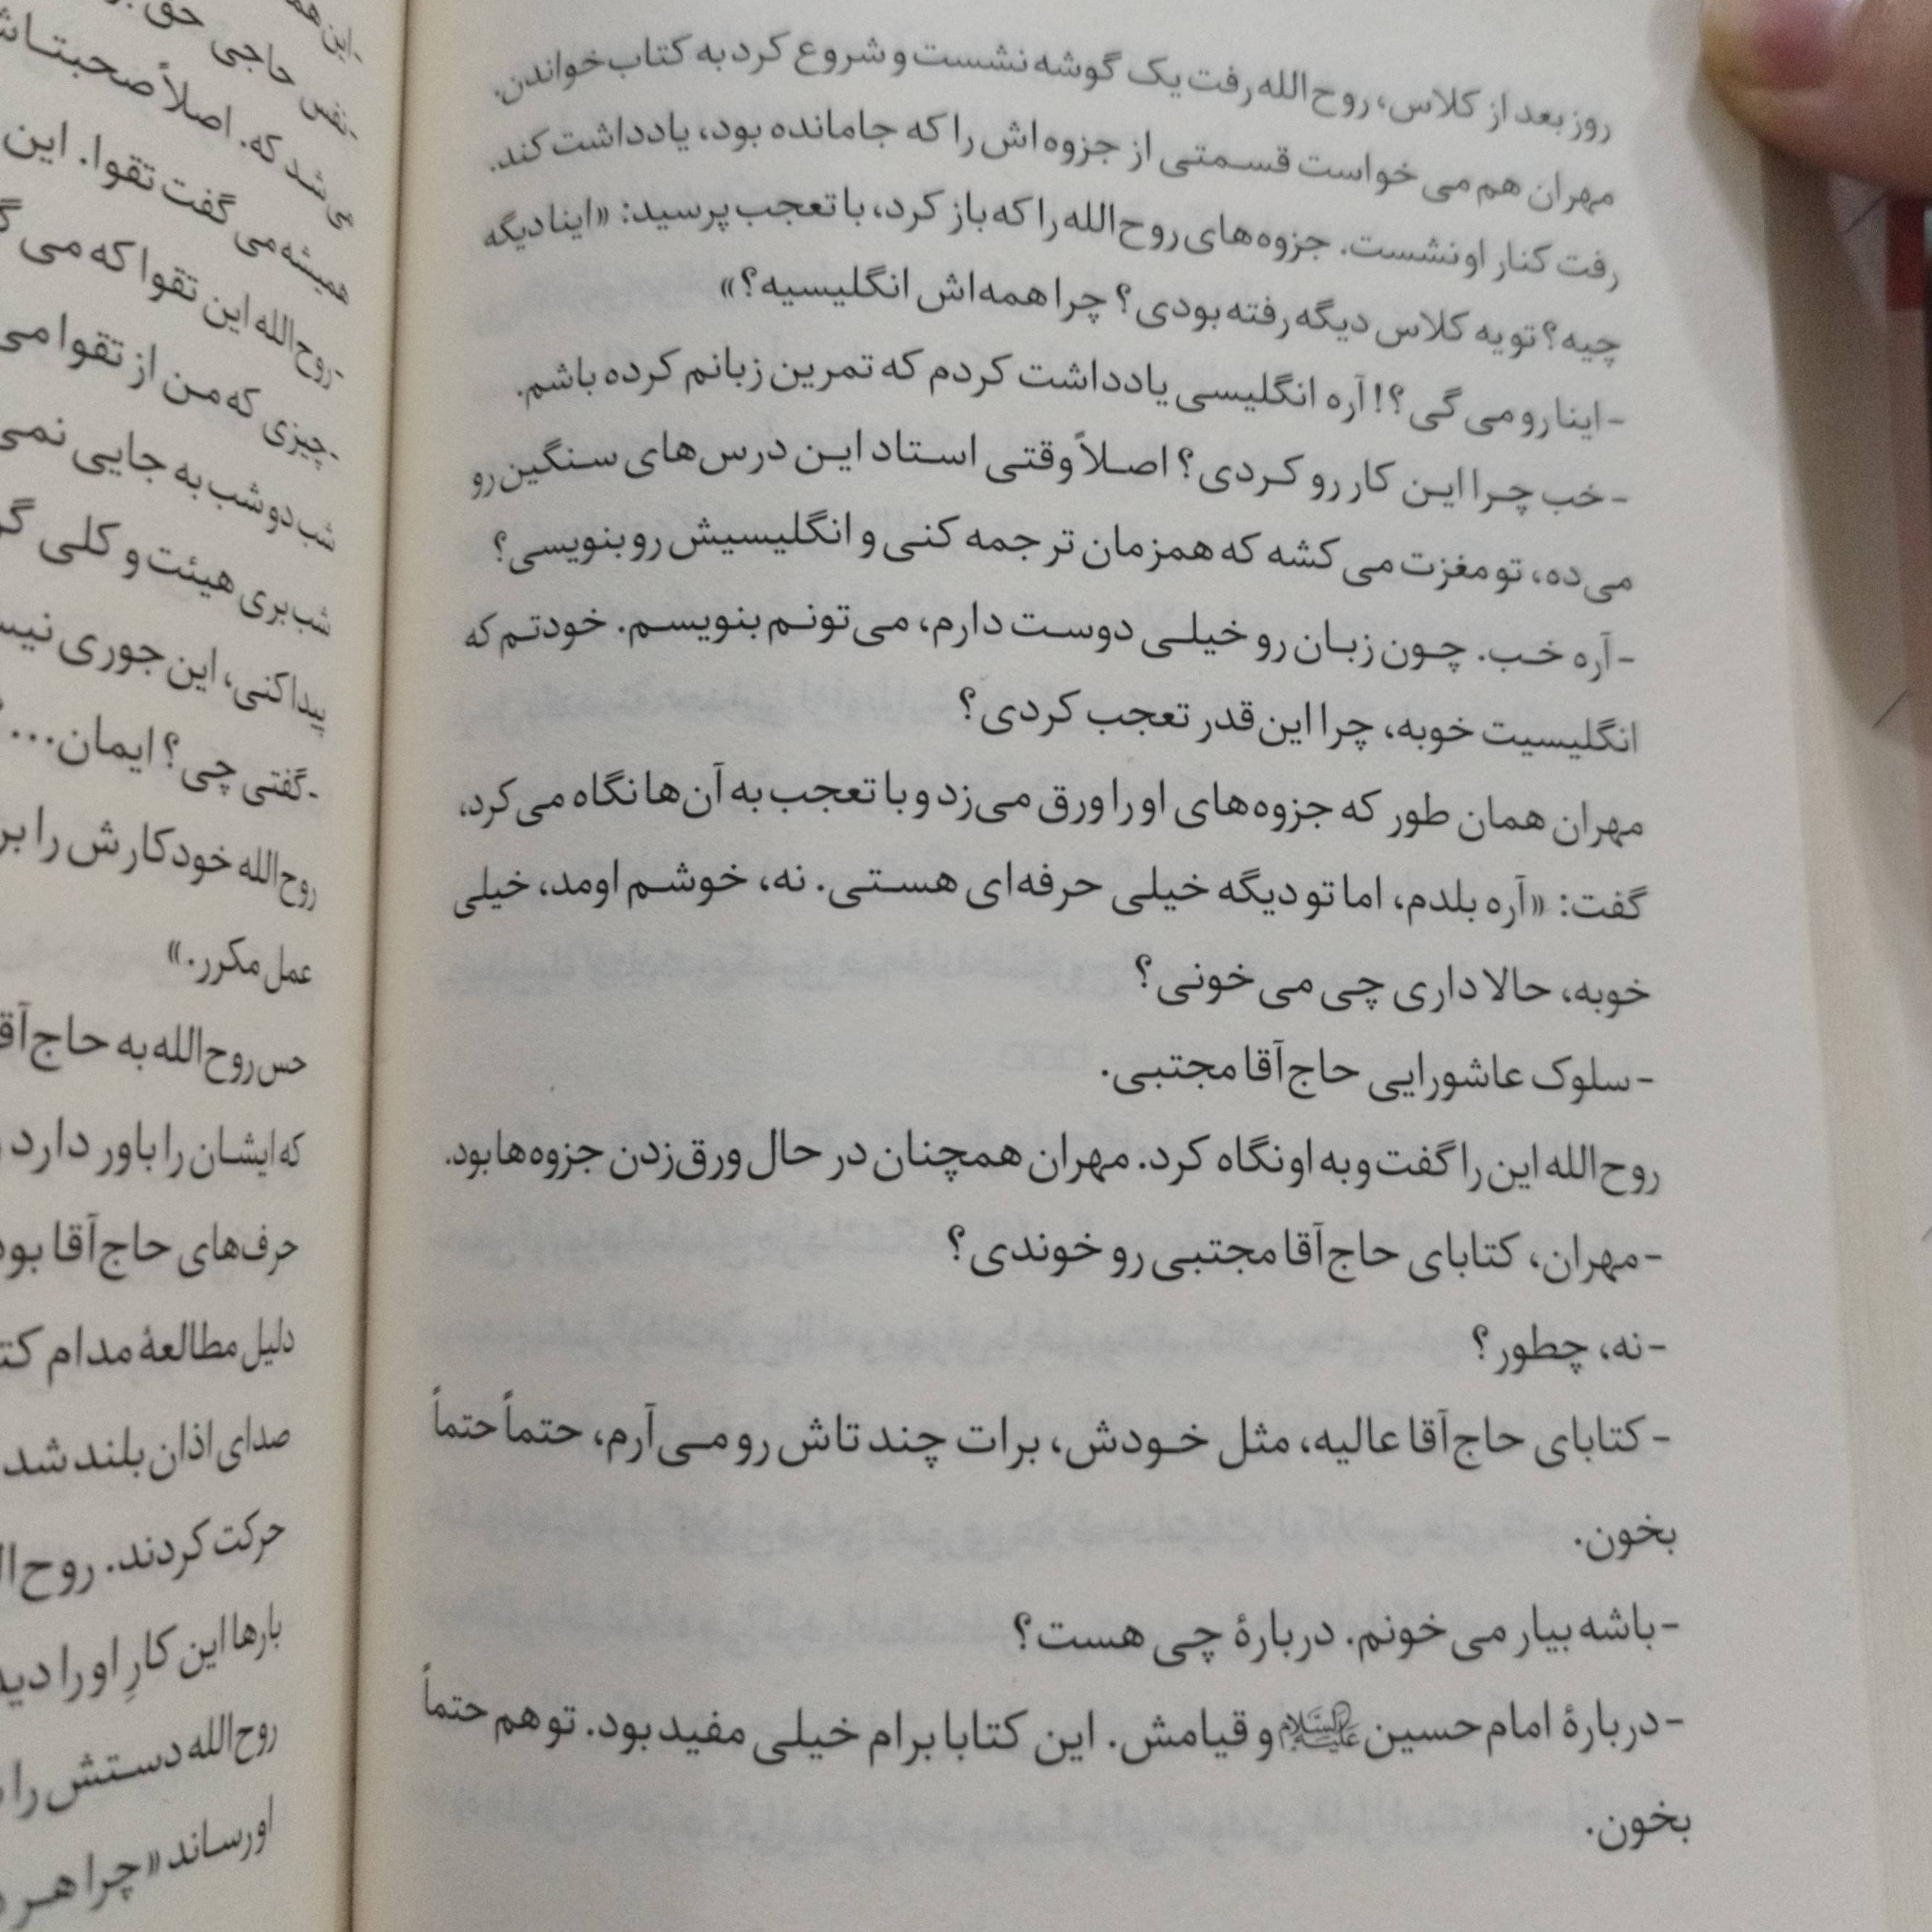 روز بعد از کلاس، روح‌الله رفت یک گوشه نشست و شروع کرد به کتاب خواندن.
مهران هم می‌خواست قسمتی از جزوه‌اش را که جا مانده بود، یادداشت کند.
رفت کنار او نشست. جزوه‌های روح‌الله را که باز کرد، با تعجب پرسید: «اینا دیگه
چیه؟ تو یه کلاس دیگه رفته بودی؟ چرا همه‌اش انگلیسیه؟»
- اینا رو می‌گی؟! آره انگلیسی یادداشت کردم که تمرین زبانم کرده باشم.
- خب چرا این کار رو کردی؟ اصلاً وقتی استاد این درس‌های سنگین رو
می‌ده، تو مغزت می‌کشه که همزمان ترجمه کنی و انگلیسیش رو بنویسی؟
- آره خب. چون زبان رو خیلی دوست دارم، می‌تونم بنویسم. خودتم که
انگلیسیت خوبه، چرا این قدر تعجب کردی؟
مهران همان طور که جزوه‌های او را ورق می‌زد و با تعجب به آن‌ها نگاه می‌کرد،
گفت: «آره بلدم، اما تو دیگه خیلی حرفه‌ای هستی. نه، خوشم اومد، خیلی
خوبه، حالا داری چی می‌خونی؟
- سلوک عاشورایی حاج‌آقا مجتبی.
روح‌الله این را گفت و به او نگاه کرد. مهران همچنان در حال ورق‌زدن جزوه‌ها بود.
- مهران، کتابای حاج‌آقا مجتبی رو خوندی؟
- نه، چطور؟
- کتابای حاج‌آقا عالیه، مثل خودش، برات چند تاش رو می‌آرم، حتماً حتماً
بخون.
- باشه بیار می‌خونم. دربارهٔ چی هست؟
- دربارهٔ امام حسین علیه‌السلام و قیامش. این کتابا برام خیلی مفید بود. تو هم حتماً
بخون.
- این
- نفس حاجی حق
می‌شد که. اصلاً
همیشه می‌گفت تقوا. این
- روح‌الله این تقوا که می
- چیزی که من از تقوا می
شب دو شب به جایی نمی
شب بری هیئت و کلی
پیدا کنی، این جوری
- گفتی چی؟ ایمان...
روح‌الله خودکارش را
عمل مکرر.»
حس روح‌الله به حاج
که ایشان را باور دارد
حرف‌های حاج‌آقا
دلیل مطالعهٔ مدام
صدای اذان بلند شد
حرکت کردند.
بارها این کارِ او را
روح‌الله دستش را
او رساند «چرا هر